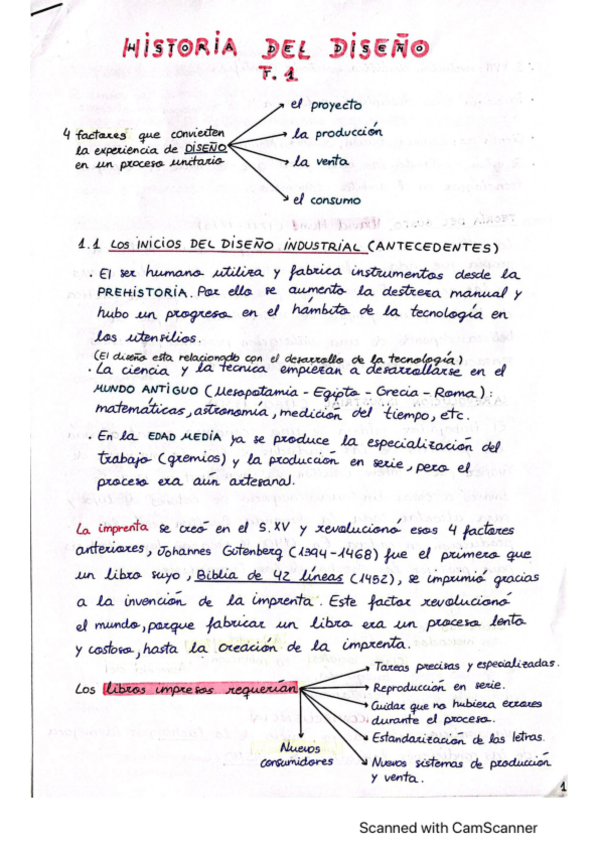 HISTORIA DEL DISEÑO
T.1
4 factores que convierten
la experiencia de DISEÑO
en un proceso unitario
el proyecto
la producción
la venta
el consumo
1.1 LOS INICIOS DEL DISEÑO INDUSTRIAL (ANTECEDENTES)
· El ser humano utiliza y fabrica instrumentos desde la
PREHISTORIA. Por ello se aumento la destreza manual y
hubo un progreso en el hámbito de la tecnología en
los utensilios.
(El diseño esta relacionado con el desarrollo de la tecnología)
· La ciencia y la técnica empiezan a desarrollarse en el
MUNDO ANTIGUO (Mesopotamia - Egipto - Grecia - Roma):
matemáticas, astronomía, medición del tiempo, etc.
· En la EDAD MEDIA ya se produce la especialización del
trabajo (gremios) y la producción en serie, pero el
proceso era aún artesanal.
La imprenta se creó en el S.XV y revolucionó esos 4 factores
anteriores, Johannes Gutenberg (1394-1468) fue el primero que
un libro suyo, Biblia de 42 líneas (1452), se imprimió gracias
a la invención de la imprenta. Este factor revolucionó
el mundo, porque fabricar un libro era un proceso lento
y costoso, hasta la creación de la imprenta.
Los libros impresos requerían
Tareas precisas y especializadas.
Reproducción en serie.
Cuidar que no hubiera errores
durante el proceso.
Estandarización de las letras.
Nuevos sistemas de producción
y venta.
Nuevos
consumidores
1
Scanned with CamScanner